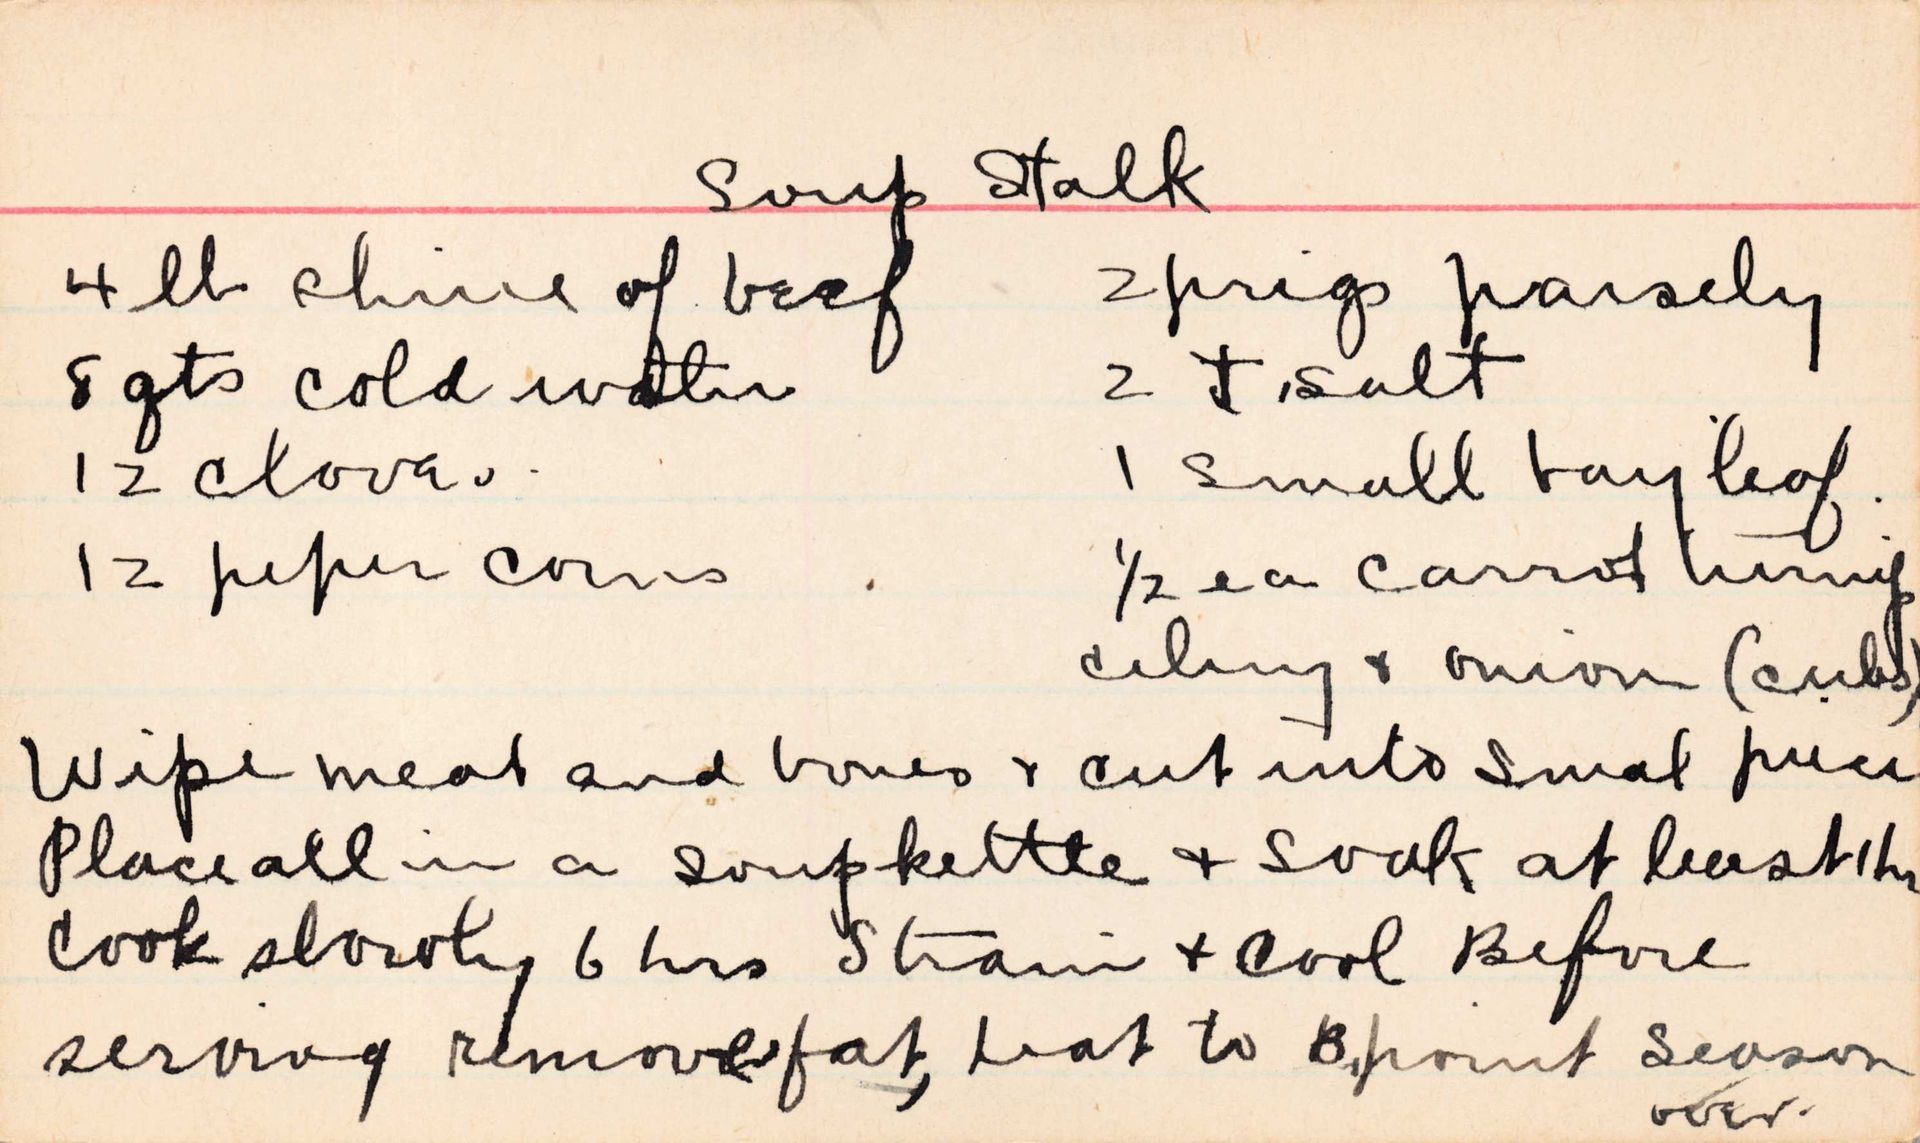 Soup Stalk
4 lb chine of beef
8 qts cold water
12 cloves.
12 peper corns
2 prigs parsely
2 T. salt
1 small bay leaf.
1/2 ea carrot turnip
celery & onion (cubs)
Wipe meat and bones & cut into smal pieces
Place all in a soup kettle & soak at least 1 hr
Cook slowly 6 hrs Strain & cool Before
serving remove fat, heat to B. point Season
over.